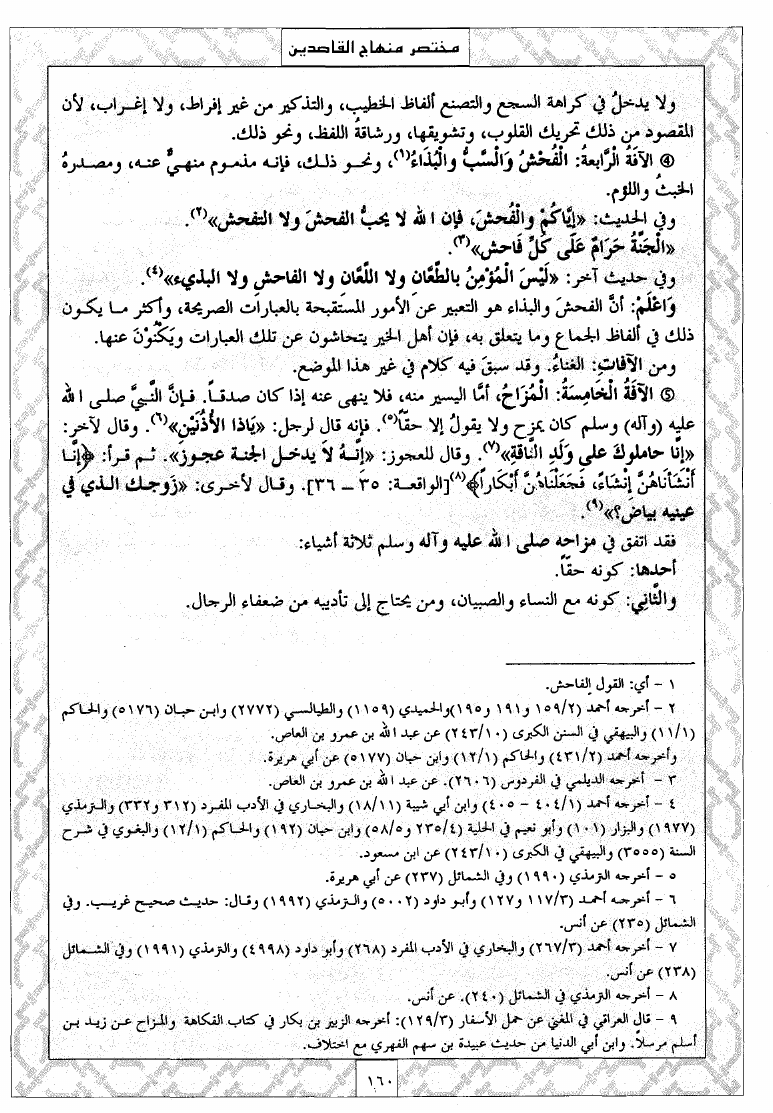 مختصر منهاج القاصدين
ولا يدخلُ في كراهة السجع والتصنع ألفاظ الخطيب، والتذكير من غير إفراط، ولا إغراب، لأن
المقصود من ذلك تحريك القلوب، وتشويقها، ورشاقةُ اللفظ، ونحو ذلك.
④ الآفَةُ الْرَابعةُ: الْفُحْشُ وَالْسَّبُّ والْبُذَاءُ(١)، ونحو ذلك، فإنه مذموم منهيٌّ عنه، ومصدرهُ
الخبثُ واللؤم.
وفي الحديث: «إيَّاكُمْ والْفُحشَ، فإن الله لا يحبُّ الفحشَ ولا التفحش»(٢).
«الْجَنَّةُ حَرَامٌ عَلَى كُلِّ فَاحش»(٣).
وفي حديث آخر: «لَيْسَ الْمُؤْمِنُ بالطَّعَّان ولا اللَّعَّان ولا الفاحش ولا البذيء»(٤).
وَاعْلَمْ: أنَّ الفحشَ والبذاء هو التعبير عن الأمور المستقبحة بالعبارات الصريحة، وأكثر ما يكون
ذلك في ألفاظ الجماع وما يتعلق به، فإن أهل الخير يتحاشون عن تلك العبارات ويَكْنُوْنَ عنها.
ومن الآفاتِ: الغناءُ. وقد سبقَ فيه كلام في غير هذا الموضع.
⑤ الآفَةُ الْخَامِسَةُ: الْمُزَاحُ، أمَّا اليسير منه، فلا ينهى عنه إذا كان صدقاً. فإنَّ النَّبيَّ صلى الله
عليه (وآله) وسلم كان يمزح ولا يقولُ إلا حقاً(٥). فإنه قال لرجل: «يَاذا الأُذُنَيْنِ»(٦). وقال لآخر:
«إنَّا حاملوكَ على وَلَدِ النَّاقةِ»(٧). وقال للعجوز: «إنَّهُ لاَ يَدخل الجنة عجوز». ثم قرأ: ﴿إنَّا
أَنْشَأنَاهُنَّ إنْشَاءً، فَجَعَلْنَاهُنَّ أبْكَاراً﴾(٨)[الواقعة: ٣٥ – ٣٦]. وقال لأخرى: «زَوجك الذي في
عينيه بياض؟»(٩).
فقد اتفق في مزاحه صلى الله عليه وآله وسلم ثلاثة أشياء:
أحدها: كونه حقاً.
والثَّاني: كونه مع النساء والصبيان، ومن يحتاج إلى تأديبه من ضعفاء الرجال.
١ – أي: القول الفاحش.
٢ – أخرجه أحمد (١٥٩/٢ و١٩١ و١٩٥)والحميدي (١١٥٩) والطيالسي (٢٧٧٢) وابن حبان (٥١٧٦) والحاكم
(١١/١) والبيهقي في السنن الكبرى (٢٤٣/١٠) عن عبد الله بن عمرو بن العاص.
وأخرجه أحمد (٤٣١/٢) والحاكم (١٢/١) وابن حبان (٥١٧٧) عن أبي هريرة.
٣ – أخرجه الديلمي في الفردوس (٢٦٠٦). عن عبد الله بن عمرو بن العاص.
٤ – أخرجه أحمد (٤٠٤/١ – ٤٠٥) وابن أبي شيبة (١٨/١١) والبخاري في الأدب المفرد (٣١٢ و٣٣٢) والترمذي
(١٩٧٧) والبزار (١٠١) وأبو نعيم في الحلية (٢٣٥/٤ و٥٨/٥) وابن حبان (١٩٢) والحاكم (١٢/١) والبغوي في شرح
السنة (٣٥٥٥) والبيهقي في الكبرى (٢٤٣/١٠) عن ابن مسعود.
٥ – أخرجه الترمذي (١٩٩٠) وفي الشمائل (٢٣٧) عن أبي هريرة.
٦ – أخرجه أحمد (١١٧/٣ و١٢٧) وأبو داود (٥٠٠٢) والترمذي (١٩٩٢) وقال: حديث صحيح غريب. وفي
الشمائل (٢٣٥) عن أنس.
٧ – أخرجه أحمد (٢٦٧/٣) والبخاري في الأدب المفرد (٢٦٨) وأبو داود (٤٩٩٨) والترمذي (١٩٩١) وفي الشمائل
(٢٣٨) عن أنس.
٨ – أخرجه الترمذي في الشمائل (٢٤٠). عن أنس.
٩ – قال العراقي في المغني عن حمل الأسفار (١٢٩/٣): أخرجه الزبير بن بكار في كتاب الفكاهة والمزاح عن زيد بن
أسلم مرسلاً. وابن أبي الدنيا من حديث عبيدة بن سهم الفهري مع اختلاف.
١٦٠